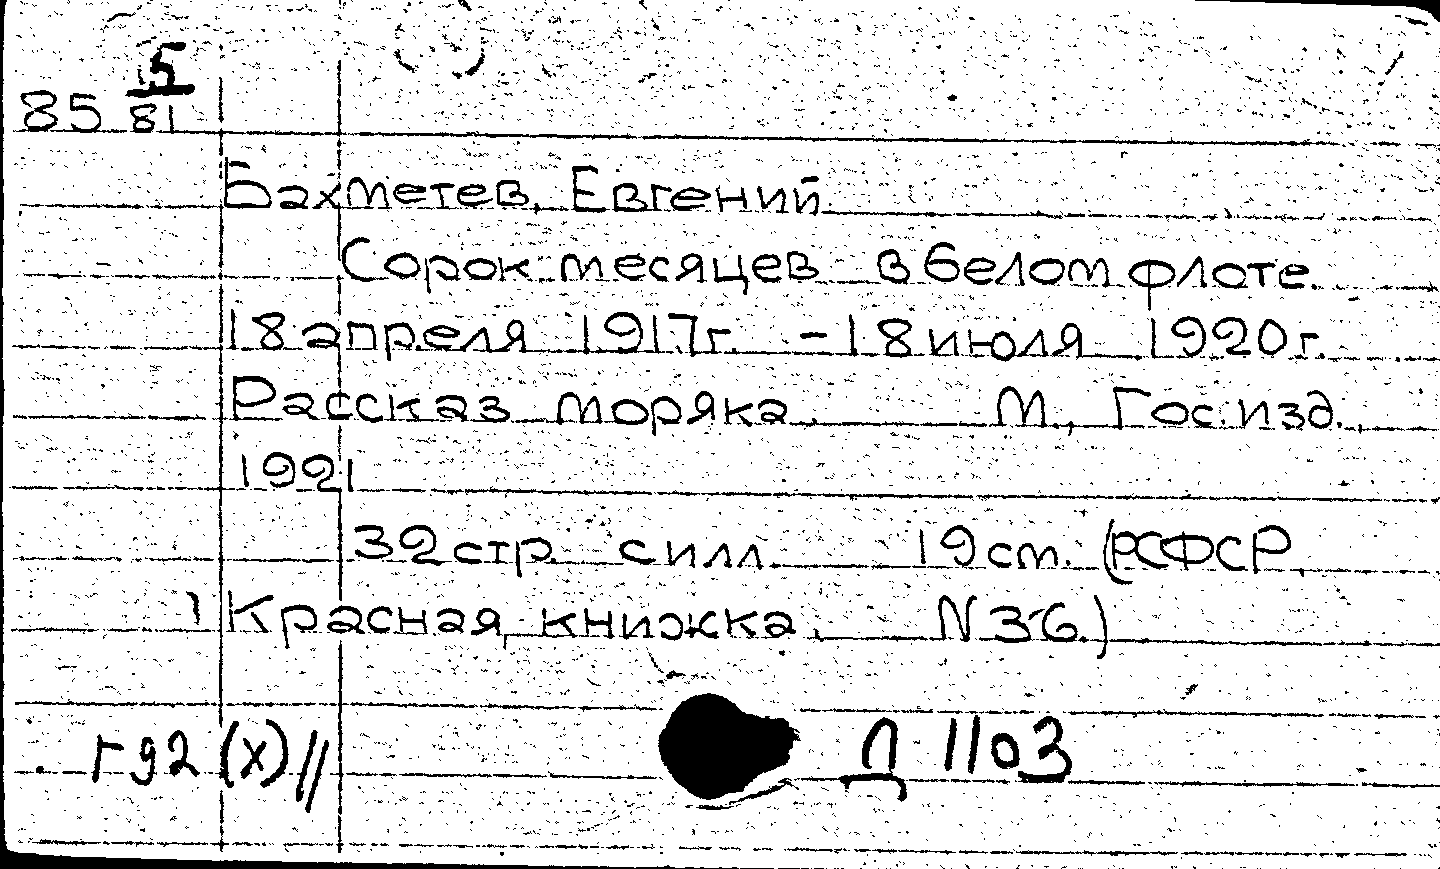 5
85 81
Бахметев, Евгений.
Сорок месяцев в белом флоте.
18 апреля 1917г. - 18 июля 1920г.
Рассказ моряка. М., Гос. изд.,
1921
32 стр. с илл. 19 см. (РСФСР.
Красная книжка. N 36.)
г92 (х) //
Д 1103